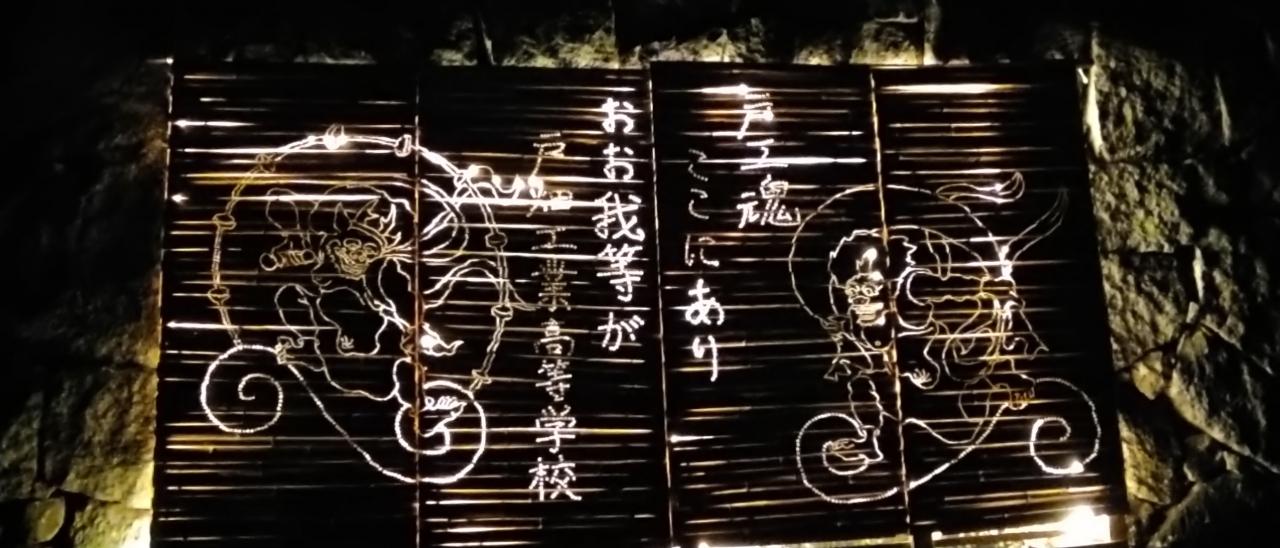 戸工魂
ここにあり
おお我等が
戸畑工業高等学校